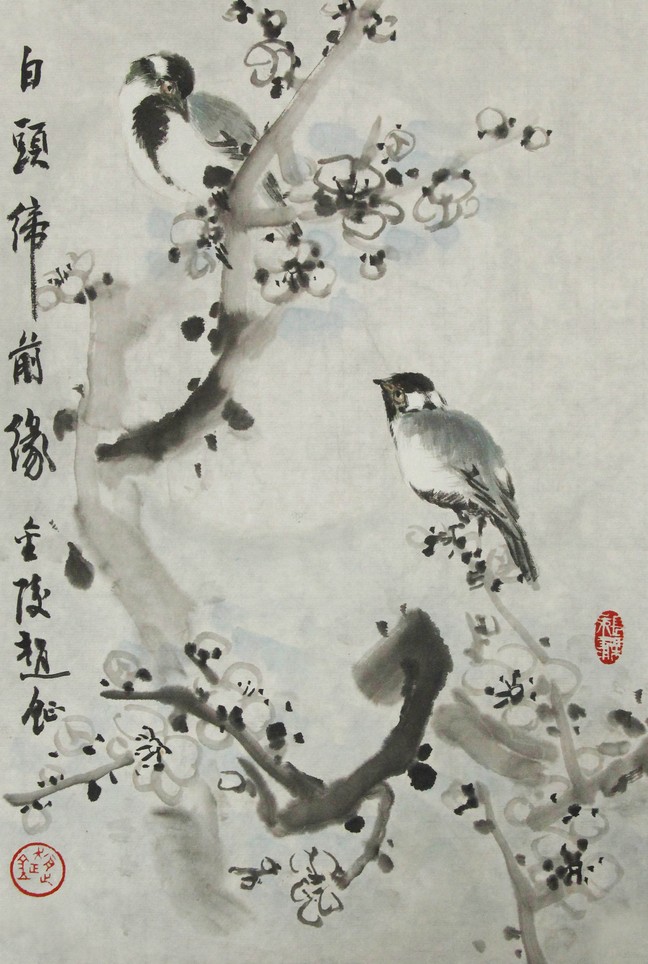 白頭締前緣 金陵趙鉦